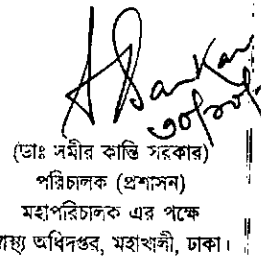 (ডাঃ সমীর কান্তি সরকার)
পরিচালক (প্রশাসন)
মহাপরিচালক এর পক্ষে
স্বাস্থ্য অধিদপ্তর, মহাখালী, ঢাকা।